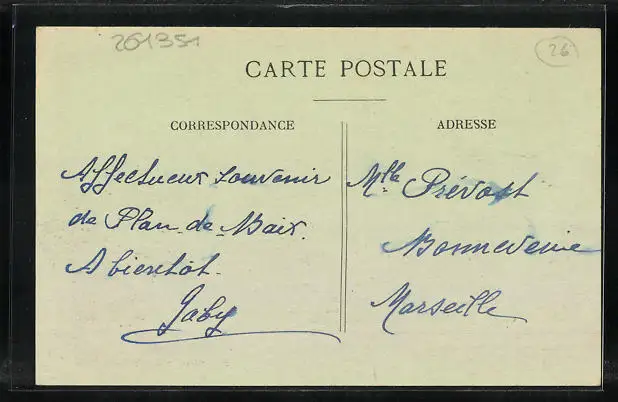 261351
26
CARTE POSTALE
CORRESPONDANCE
Affectueux souvenir
de Plan-de-Baix.
A bientôt.
Gaby
ADRESSE
Mlle Prévost
Bonneveine
Marseille